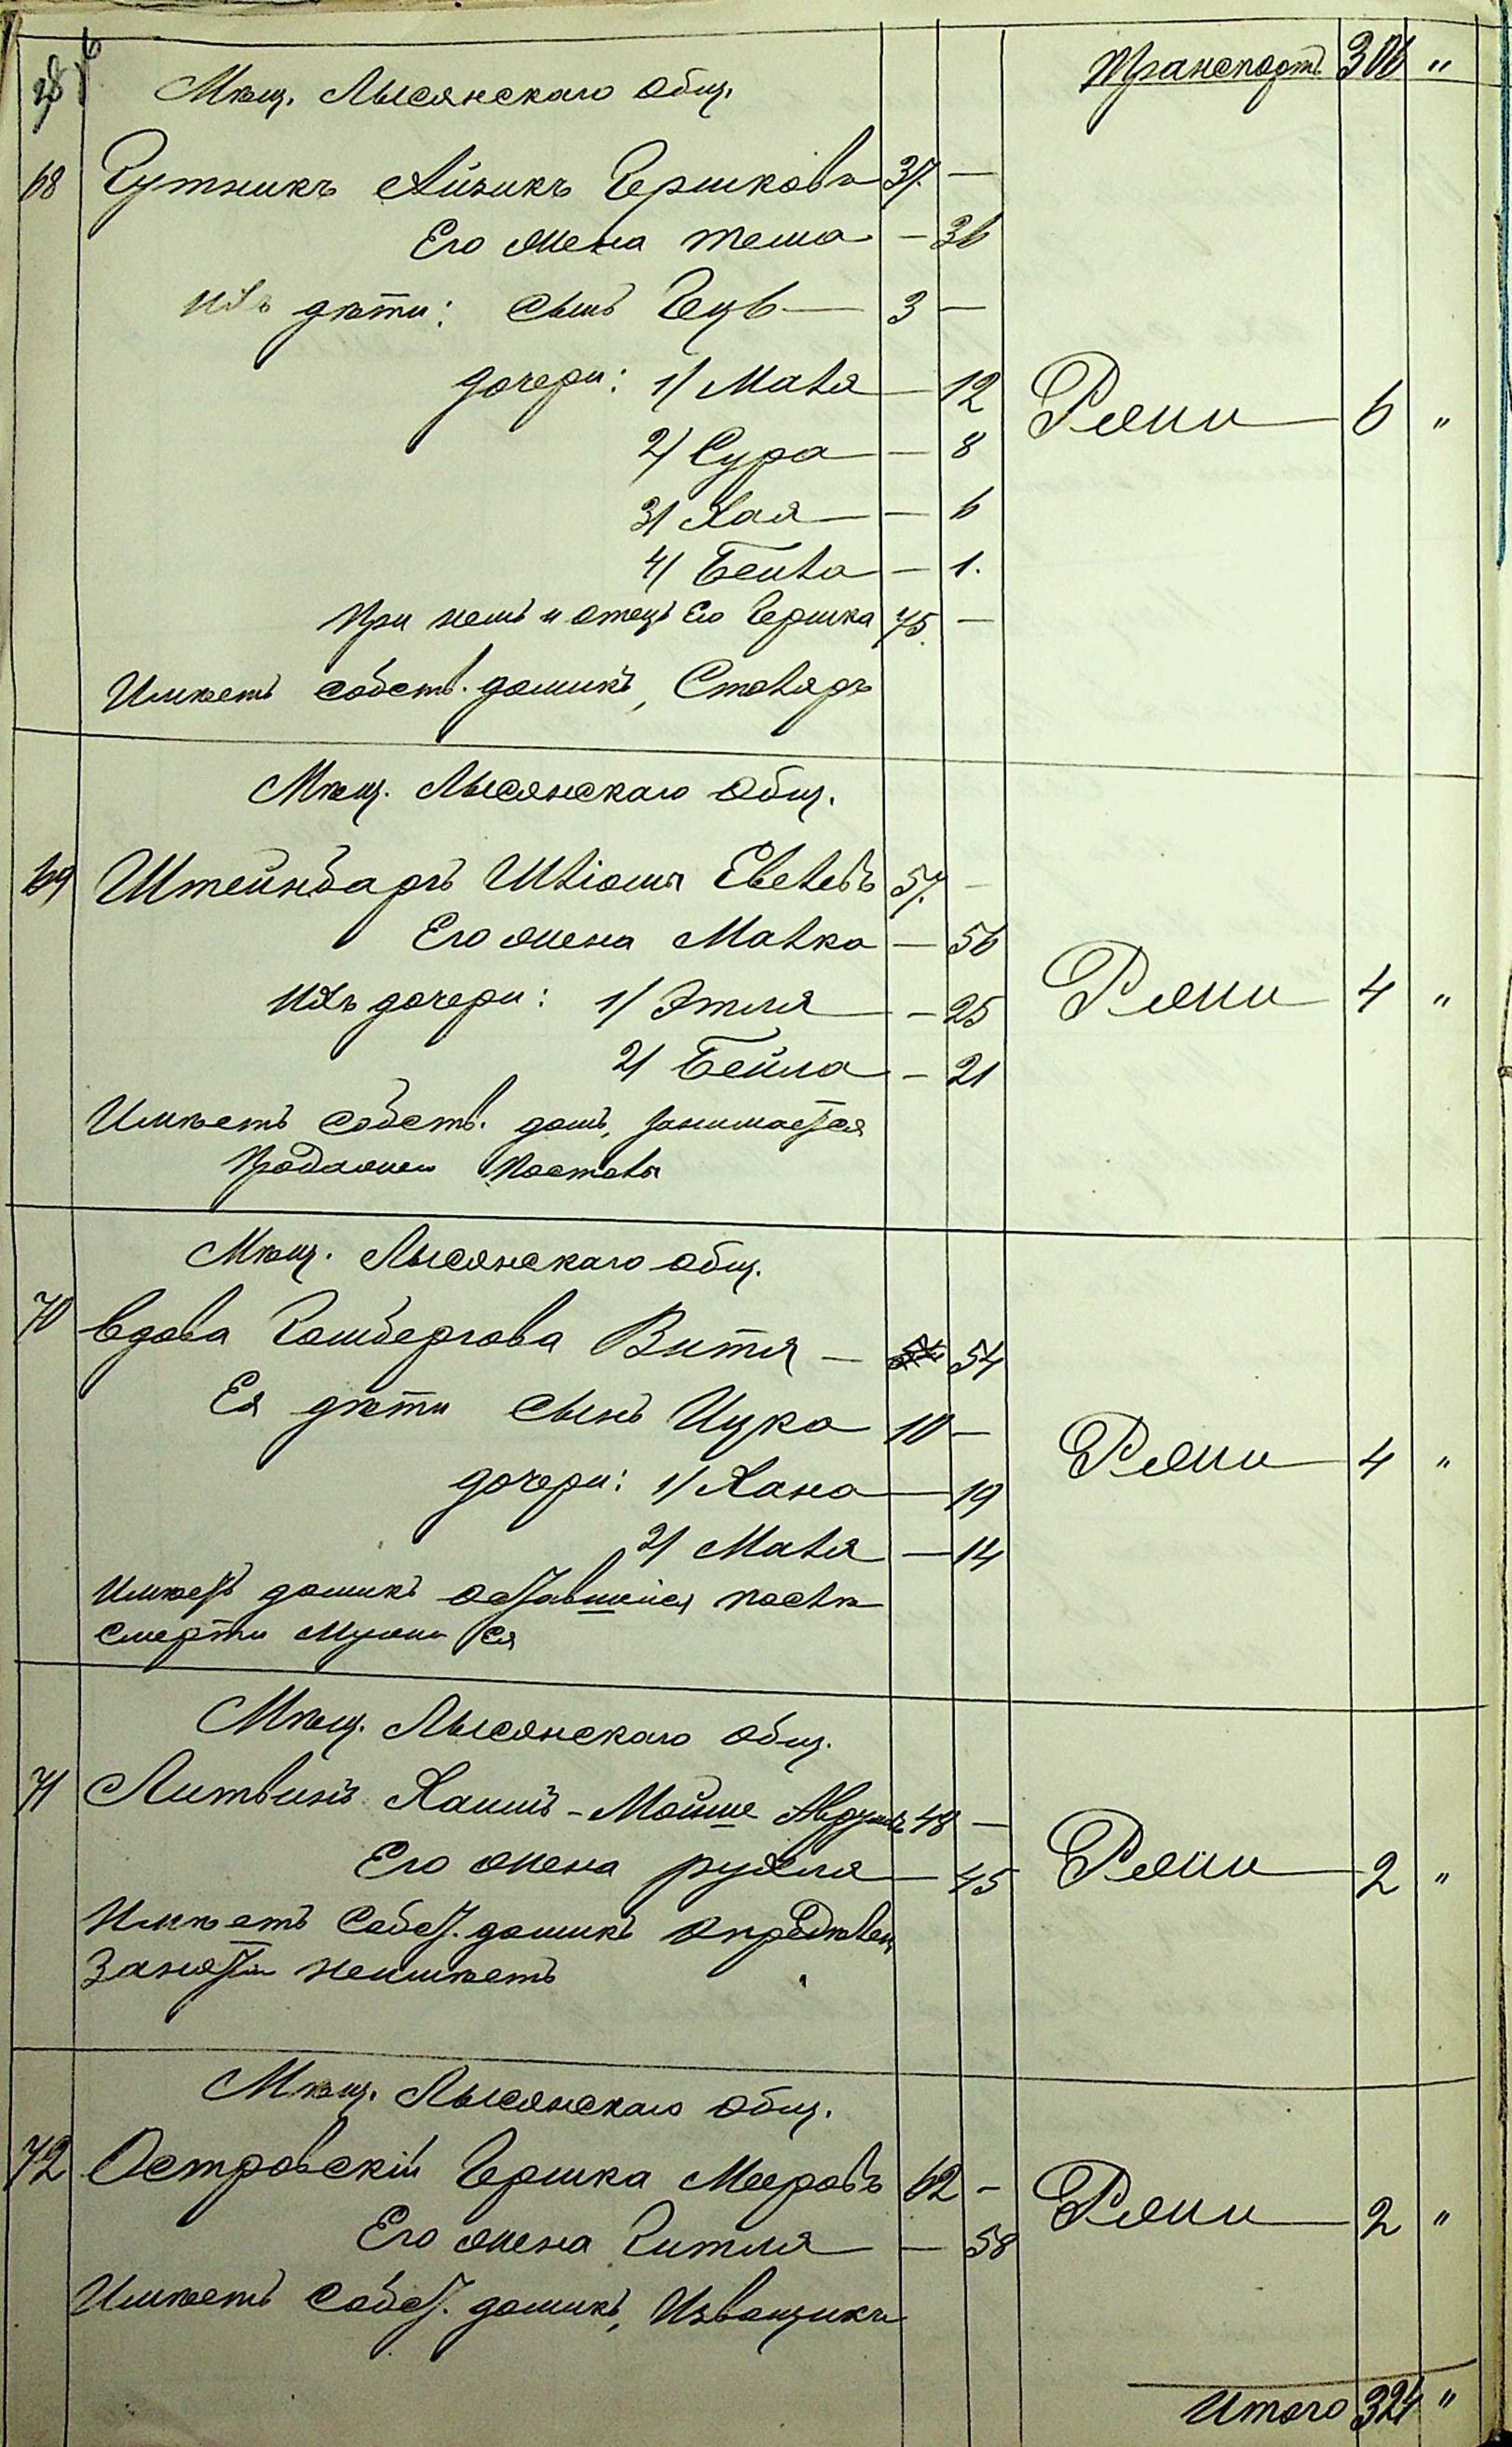 Транспортъ 306 "
Мѣщ. Лысянскаго общ.
68 Гутникъ Айзикъ Гершковъ 37. —
Его жена тема — 36
Ихъ дѣти: сынъ Гецъ — 3 —
дочери: 1/ Маля — 12 Ряни — 6 "
2/ Сура — 8
3/ Хая — 6
4/ Бейла — 1.
При немъ и отецъ Его Гершка 75. —
Имѣетъ собств. домикъ, Столяръ
Мѣщ. Лысянскаго общ.
69 Штейнбаргъ Шліома Евелевъ 57. —
Его жена Малка — 56
Ихъ дочери: 1/ Этля — 25 Ряни — 4 "
2/ Бейла — 21
Имѣетъ собств. домъ, занимается
Продажей
Мѣщ. Лысянскаго общ.
70 Вдова Гомбергова Витя — 54
Ея дѣти сынъ Ицко 10 —
дочери: 1/ Хана — 19 Ряни — 4 "
2/ Маля — 14
Имѣетъ домикъ оставшійся послѣ
смерти мужа ея
Мѣщ. Лысянскаго общ.
71 Литвинъ Хаимъ-Мойше Аврумъ 48 —
Его жена рухля — 45 Ряни — 2 "
Имѣетъ собст. домикъ опредѣлен
Занятія неимѣетъ
Мѣщ. Лысянскаго общ.
72 Островскій Гершка Мееровъ 62 —
Его жена Гитля — 58 Ряни — 2 "
Имѣетъ собст. домикъ, Извощикъ
Итого 324 "